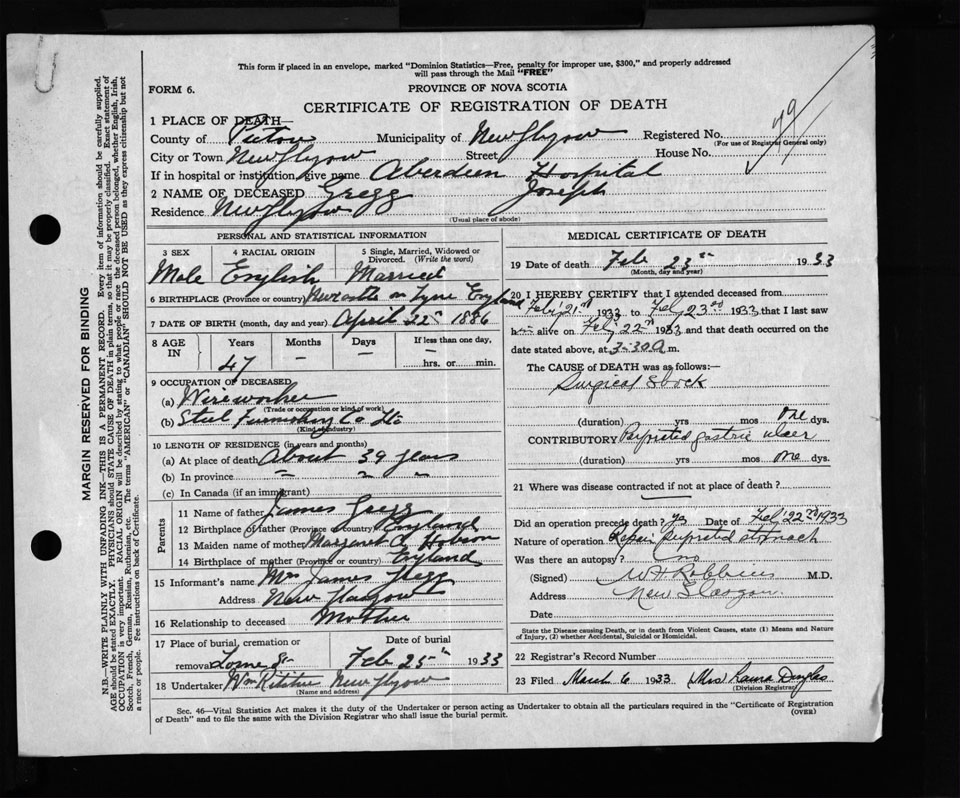 This form if placed in an envelope, marked "Dominion Statistics—Free, penalty for improper use, $300," and properly addressed
will pass through the Mail "FREE"
FORM 6.
PROVINCE OF NOVA SCOTIA
CERTIFICATE OF REGISTRATION OF DEATH
1 PLACE OF DEATH—
County of Pictou Municipality of New Glasgow Registered No. 79
(For use of Registrar General only)
City or Town New Glasgow Street House No.
If in hospital or institution, give name Aberdeen Hospital
2 NAME OF DECEASED Gregg Joseph
Residence New Glasgow
(Usual place of abode)
PERSONAL AND STATISTICAL INFORMATION
3 SEX 4 RACIAL ORIGIN 5 Single, Married, Widowed or Divorced. (Write the word)
Male English Married
6 BIRTHPLACE (Province or country) Newcastle on Tyne England
7 DATE OF BIRTH (month, day and year) April 22nd 1886
8 AGE IN Years Months Days If less than one day,
47 — — — hrs. or min.
9 OCCUPATION OF DECEASED
(a) Wireworker
(Trade or occupation or kind of work)
(b) Steel Furnishing Co Ltd
(Kind of industry)
10 LENGTH OF RESIDENCE (in years and months)
(a) At place of death About 39 years
(b) In province " " "
(c) In Canada (if an immigrant)
Parents
11 Name of father James Gregg
12 Birthplace of father (Province or country) England
13 Maiden name of mother Margaret A Hobson
14 Birthplace of mother (Province or country) England
15 Informant's name Mrs James Gregg
Address New Glasgow
16 Relationship to deceased Mother
17 Place of burial, cremation or removal Lorne St Date of burial Feb 25th 1933
18 Undertaker New Glasgow
(Name and address)
MEDICAL CERTIFICATE OF DEATH
19 Date of death Feb 23rd 1933
(Month, day and year)
20 I HEREBY CERTIFY that I attended deceased from
Feb 21st 1933 to Feb 23rd 1933 that I last saw
him alive on Feb 22nd 1933 and that death occurred on
date stated above, at 3-30 a m.
The CAUSE of DEATH was as follows:—
Surgical Shock
(duration) yrs mos One dys.
CONTRIBUTORY Perforated gastric ulcer
(duration) yrs mos One dys.
21 Where was disease contracted if not at place of death?
—
Did an operation precede death? yes Date of Feb 22nd 1933
Nature of operation Repair perforated stomach
Was there an autopsy? no
(Signed) W H Robbins M.D.
Address New Glasgow.
Date
State the Disease causing Death, or in death from Violent Causes, state (1) Means and Nature
of Injury, (2) whether Accidental, Suicidal or Homicidal.
22 Registrar's Record Number
23 Filed March 6 1933 Mrs Laura Douglas
(Division Registrar)
Sec. 46—Vital Statistics Act makes it the duty of the Undertaker or person acting as Undertaker to obtain all the particulars required in the "Certificate of Registration
of Death" and to file the same with the Division Registrar who shall issue the burial permit.
(OVER)
MARGIN RESERVED FOR BINDING
N.B.—WRITE PLAINLY WITH UNFADING INK—THIS IS A PERMANENT RECORD. Every item of information should be carefully supplied.
AGE should be stated EXACTLY. PHYSICIANS should STATE CAUSE OF DEATH in plain terms, so that it may be properly classified. Exact statement of
OCCUPATION is very important. RACIAL ORIGIN will be described by stating to what people or race the deceased person belonged, whether English, Irish,
Scotch, French, German, Russian, Ruthenian, etc. The terms "AMERICAN" or "CANADIAN" SHOULD NOT BE USED as they express citizenship but not
a race or people. Fee instructions on back of Certificate.